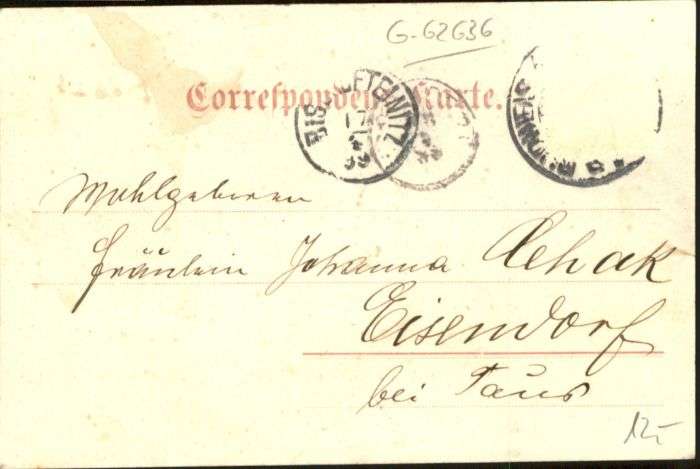 G-62636
Correspondenz-Karte.
BISCHOFTEINITZ
17
99
Wohlgeboren
Fräulein Johanna
Eisendorf
bei Taus
12-